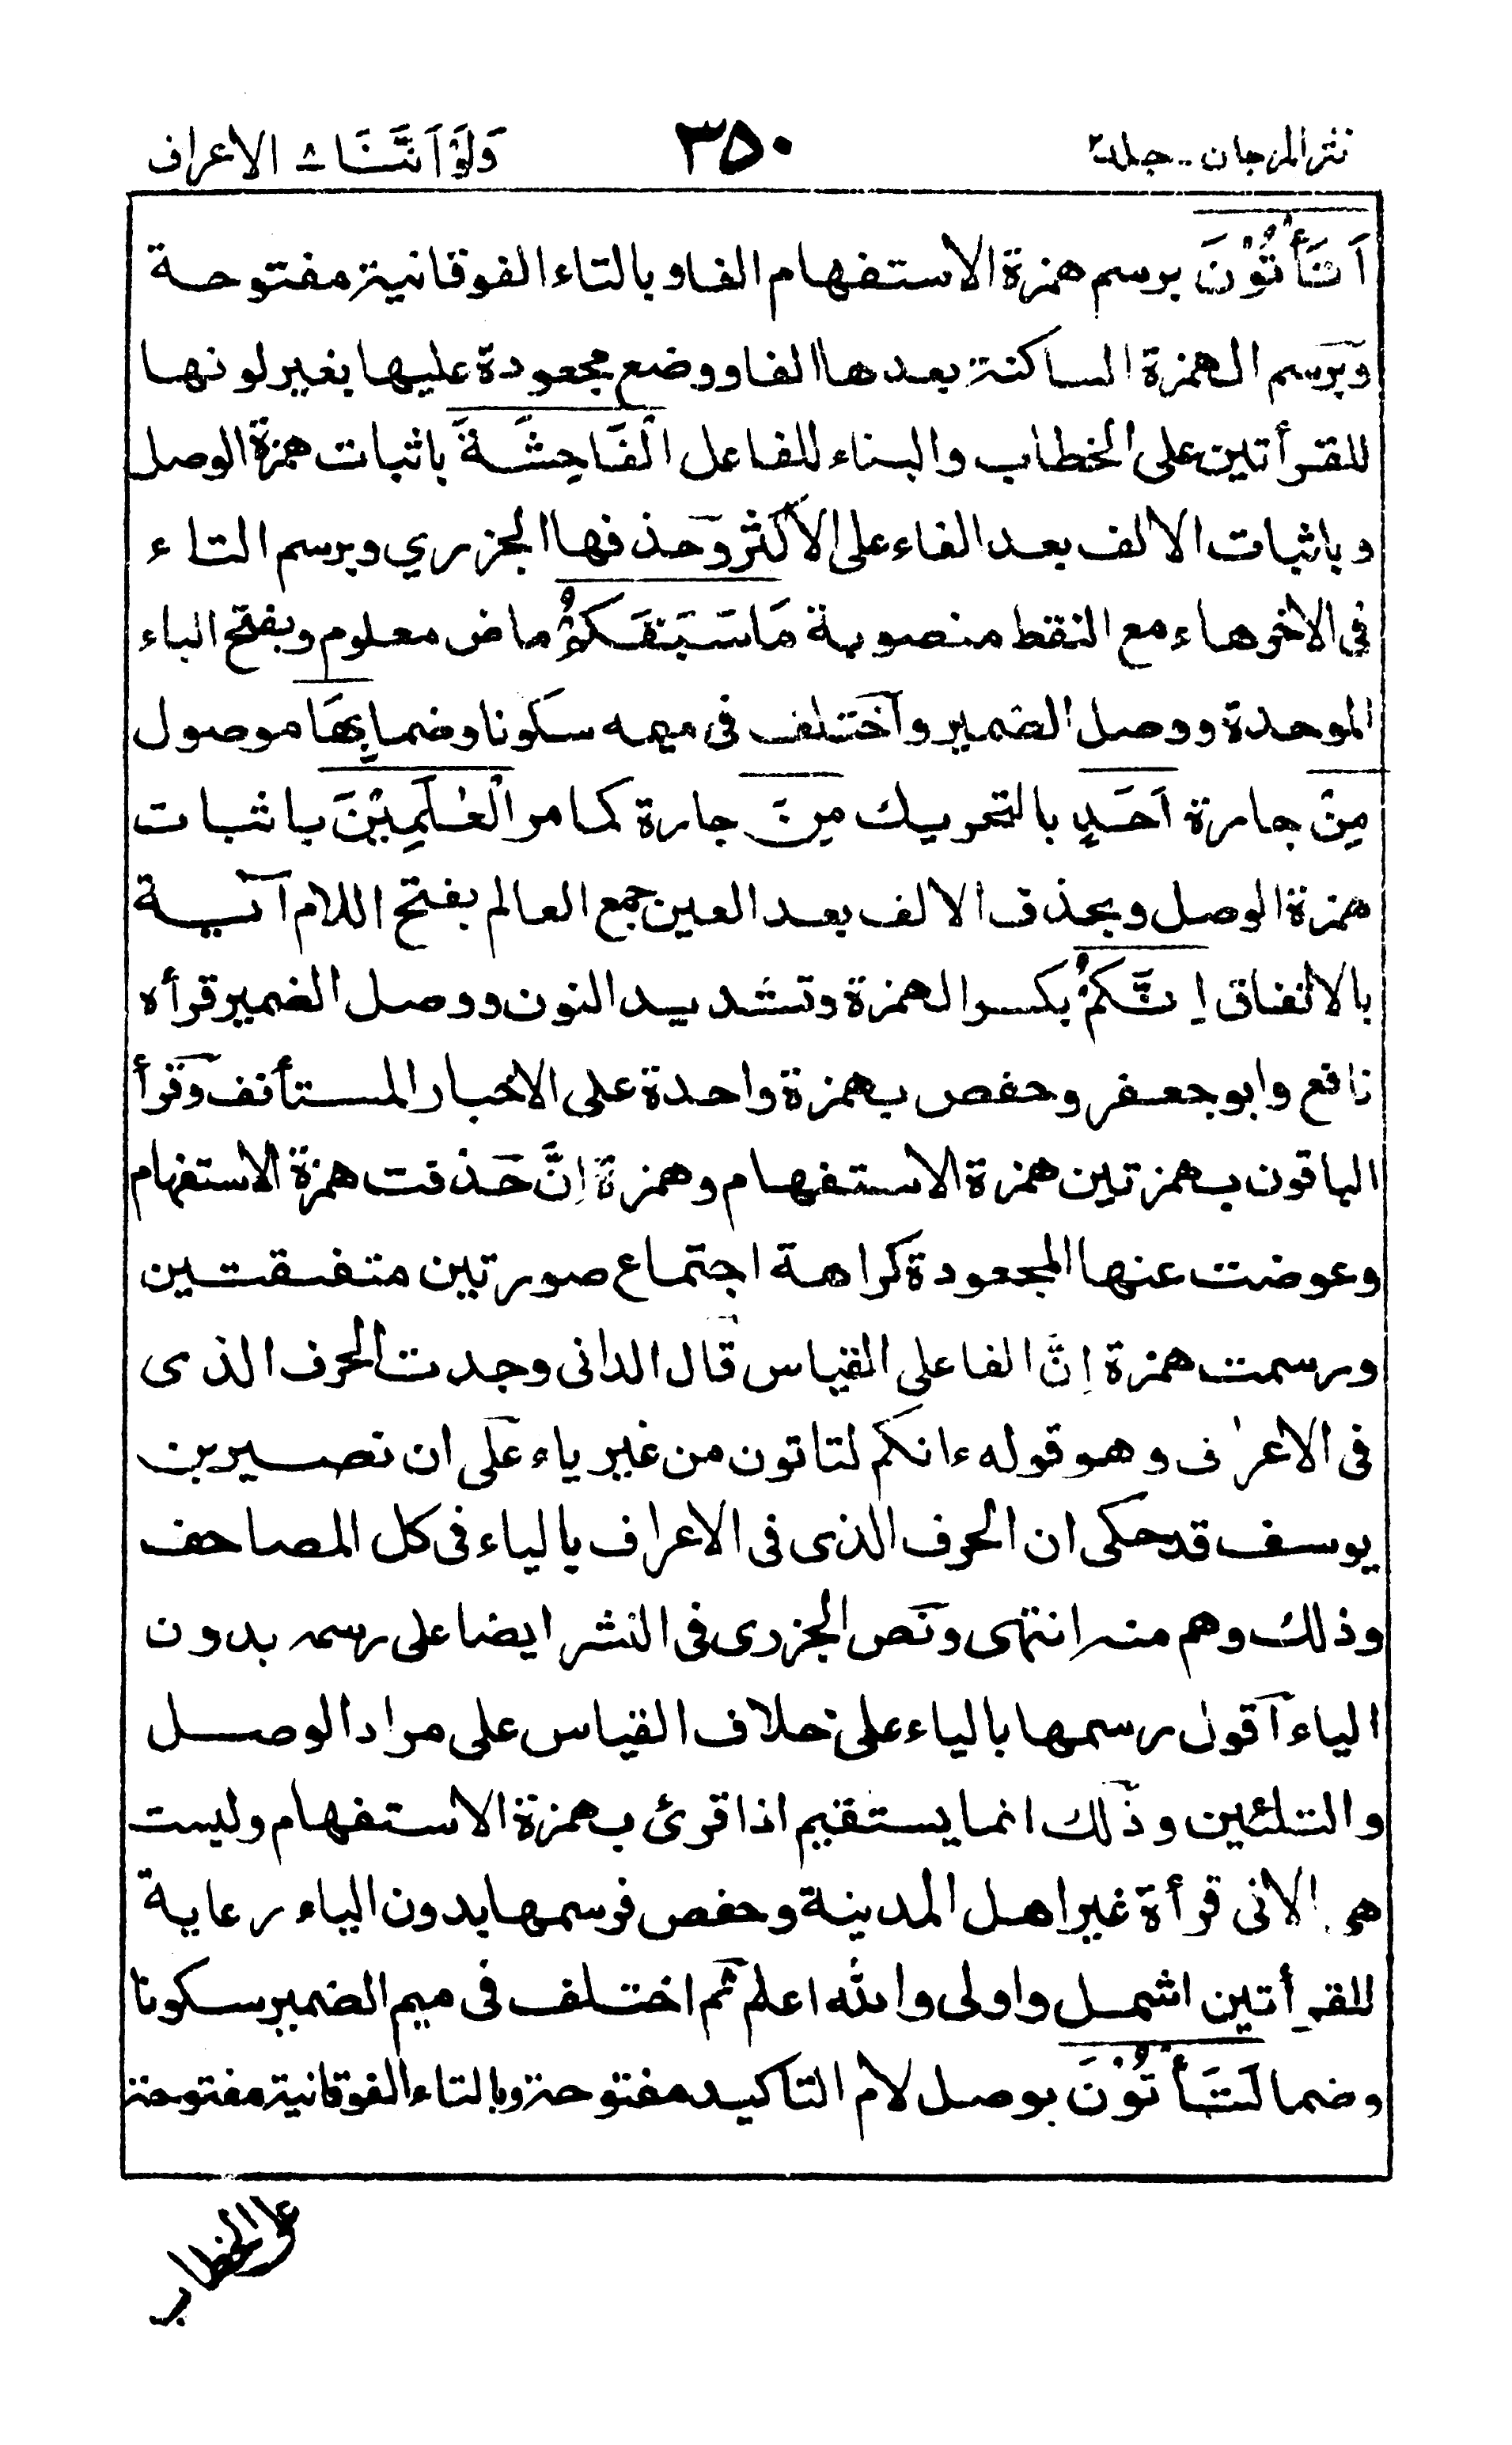 نثر المرجان - جلد۲
۳۵۰
وَلَوْ اَنَّنَا ۸ الاعراف
اَتَأْتُوْنَ برسم همزة الاستفهام الفا وبالتاء الفوقانية مفتوحة
وبرسم الهمزة الساكنة بعدها الفا ووضع مجعودة عليها بغير لونها
للقرأتين على الخطاب والبناء للفاعل الْفَاحِشَةَ باثبات همزة الوصل
وباثبات الالف بعد الفاء على الاكثر وحذفها الجزري وبرسم التاء
فى الاخرهاء مع النقط منصوبة مَاسَبَقَكُمْ ماض معلوم وبفتح الباء
الموحدة ووصل الضمير واختلف فى ميمه سكونا وضما بِهَا موصول
مِنْ جارة اَحَدٍ بالتحريك مِنَ جارة كما مر الْعٰلَمِيْنَ باثبات
همزة الوصل وبحذف الالف بعد العين جمع العالم بفتح اللام آية
بالاتفاق اِنَّكُمْ بكسر الهمزة وتشديد النون ووصل الضمير قرأه
نافع وابو جعفر وحفص بهمزة واحدة على الاخبار المستأنف وقرأ
الباقون بهمزتين همزة الاستفهام وهمزة اِنَّ حذفت همزة الاستفهام
وعوضت عنها المجعودة كراهة اجتماع صورتين متفقتين
ورسمت همزة اِنَّ الفا على القياس قال الدانى وجدت الحرف الذى
فى الاعرٰف وهو قوله ءانكم لتاتون من غير ياء على ان نصير بن
يوسف قد حكى ان الحرف الذى فى الاعراف بالياء فى كل المصاحف
وذلك وهم منه انتهى ونص الجزرى فى النشر ايضا على رسمه بدون
الياء اقول رسمها بالياء على خلاف القياس على مراد الوصل
والتلئين وذلك انما يستقيم اذا قرئ بهمزة الاستفهام وليست
هى الا فى قرأة غير اهل المدينة وحفص فرسمها بدون الياء رعاية
للقرأتين اشمل واولى والله اعلم ثم اختلف فى ميم الضمير سكونا
وضما لَتَأْتُوْنَ بوصل لام التاكيد مفتوحة وبالتاء الفوقانية مفتوحة
على الخطاب